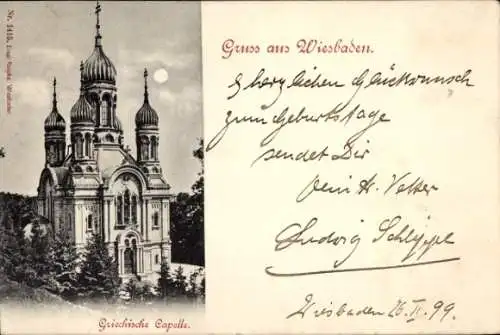 Nr. 1415.
Gruss aus Wiesbaden.
herzlichen Glückwunsch
zum Geburtstage
sendet Dir
Dein tr. Vetter
Ludwig Schlippe
Wiesbaden 26. II. 99.
Griechische Capelle.